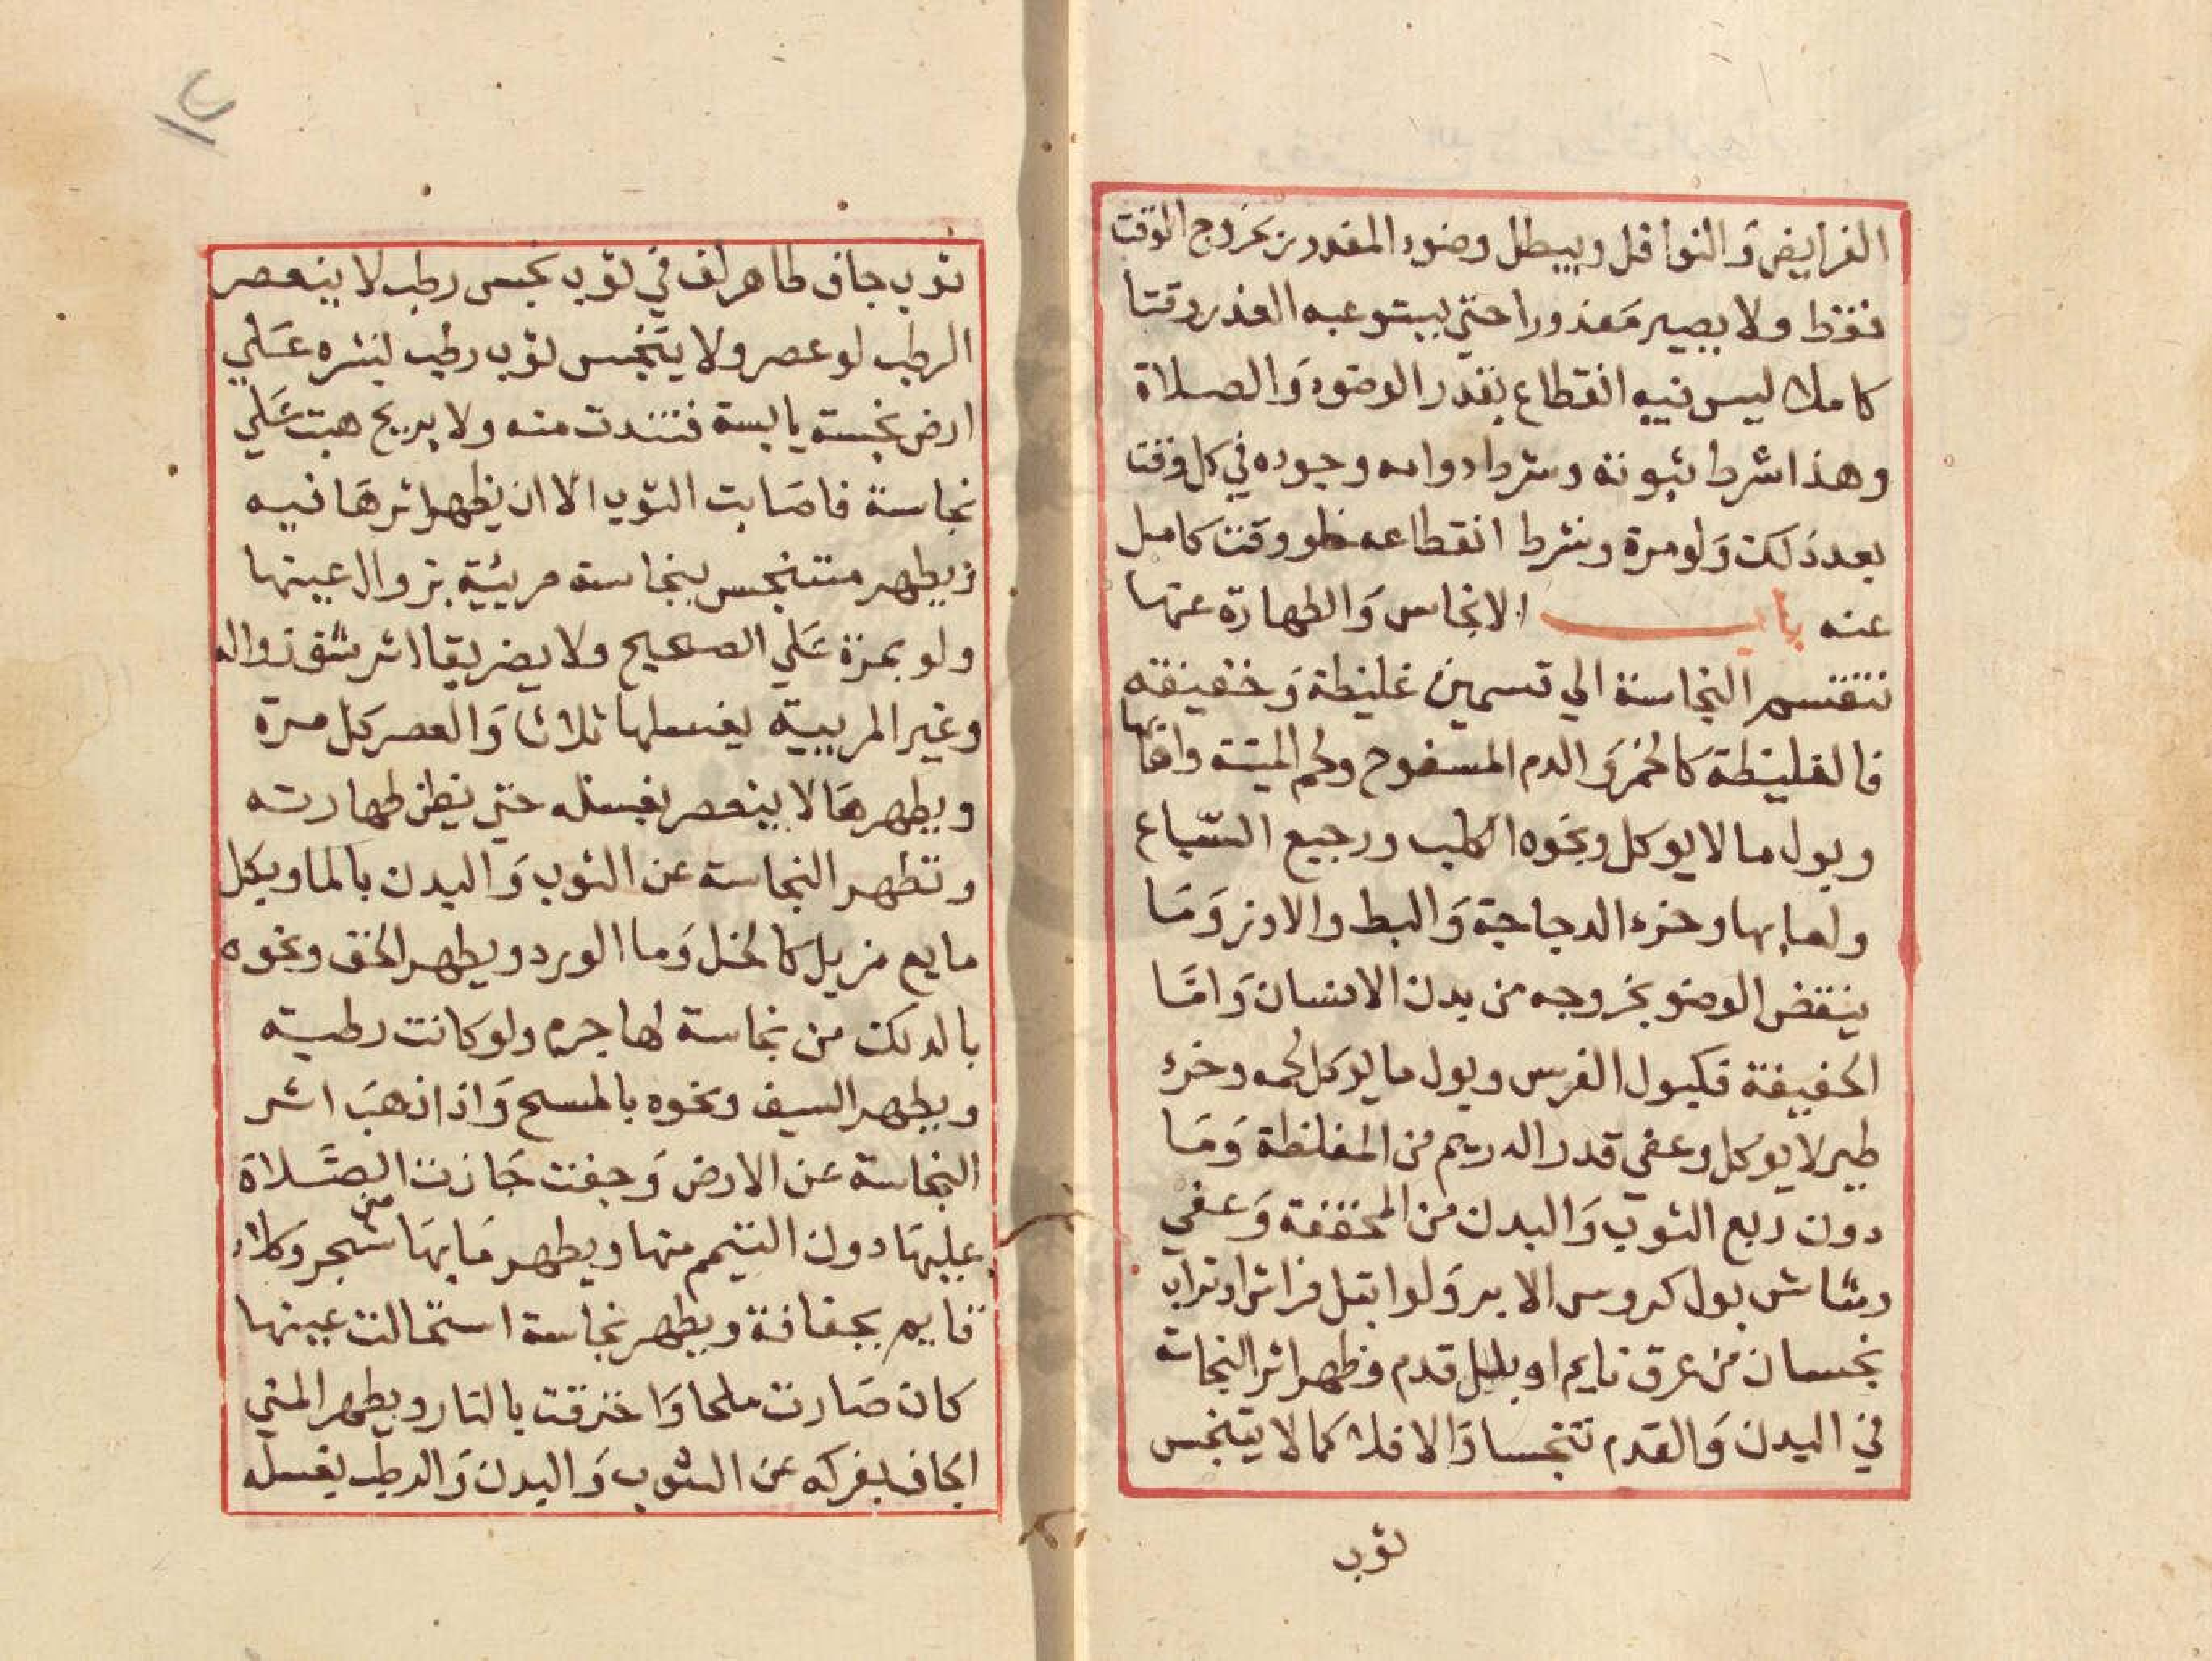 الفرايض وَالنوافل ويبطل وضوء المعذورين بخروج الوقت
فقط ولا يصير مَعذورا حتي يستوعبه العذر وقتا
كاملا ليس فيه انقطاع بقدر الوضوء وَالصلاة
وهذا شرط ثبوته وشرط دوامه وجوده في كل وقت
بعد ذلك وَلو مرة وشرط انقطاعه خلو وقت كامل
عنه باب الانجاس وَالطهارة عنها
تنقسم النجاسة الي قسمين غليظة وَخفيفة
فالغليظة كالخمر وَالدم المسفوح ولحم الميتة واهابها
وبول ما لا يوكل ونجوه الكلب ورجيع السّباع
ولعابها وخرء الدجاجة وَالبط والاوز وَمَا
ينقض الوضو بخروجه من بدن الانسان وَامَّا
الخفيفة فكبول الفرس وبول ما يوكل لحمه وخرء
طير لا يوكل وعفي قدر الدرهم من المغلظة وَمَا
دون ربع الثوب وَالبدن من المخففة وَعفي
رشاش بول كروس الابر وَلو ابتل فراش او تراب
نجسان من عرق نايم او بلل قدم وظهر اثر النجاسة
في البدن وَالقدم تنجسا وَالا فلا كما لا يتنجس
ثوب
١٢
ثوب جاف طاهر لف في ثوب نجس رطب لا ينعصر
الرطب لو عصر ولا يتنجس ثوب رطب بنشره عَلي
ارض نجسة يابسة فتندت منه ولا بريح هبت عَلي
نجاسة فاصَابت الثوب الا ان يظهر اثرهَا فيه
ويطهر متنجس بنجاسة مريية بزوال عينها
ولو بمرة عَلي الصحيح ولا يضر بقا اثر شق زواله
وغير المريية بغسلها ثلاثا وَالعصر كل مرة
ويطهر مَا لا ينعصر بغسله حتي يظن طهارته
وتطهر النجاسة عن الثوب وَالبدن بالما وبكل
مايع مزيل كالخل وَما الورد ويطهر الخف ونحوه
بالدلك من نجاسة لها جرم ولو كانت رطبة
ويطهر السيف ونحوه بالمسح وَاذا ذهبَ اثر
النجاسة عَن الارض وَجفت جَازت الصَّلاة
عليهَا دون التيمم منها ويطهر مَا بهَا من شجر وكلاء
قايم بجفافه ويطهر نجاسة استحالت عينها
كان صَارت ملحا وَاحترقت بالنار ويطهر المني
الجاف بفركه عن الثوب وَالبدن وَالرطب بغسله